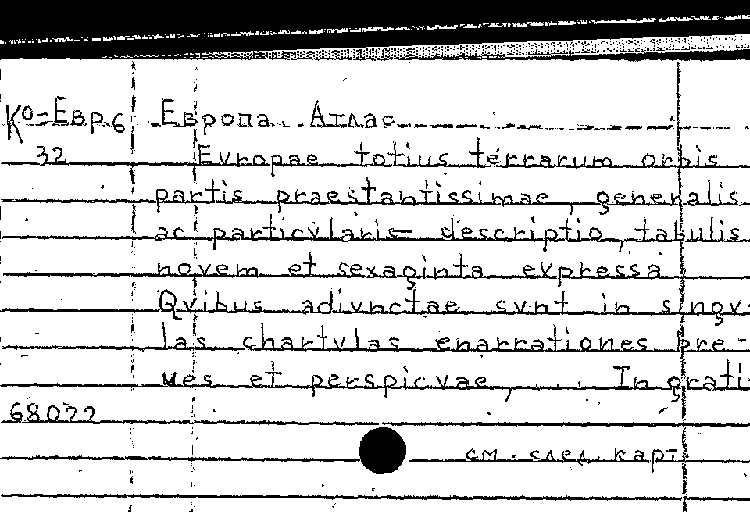 Ко-Евр.6 Европа. Атлас
32 Evropae totius terrarum orbis
partis praestantissimae, generalis
ac particvlaris descriptio, tabulis
novem et sexaginta expressa
Qvibus adivnctae svnt in singv-
las chartvlas enarrationes bre-
ves et perspicvae, ... In grati
68022
см. след. карт.